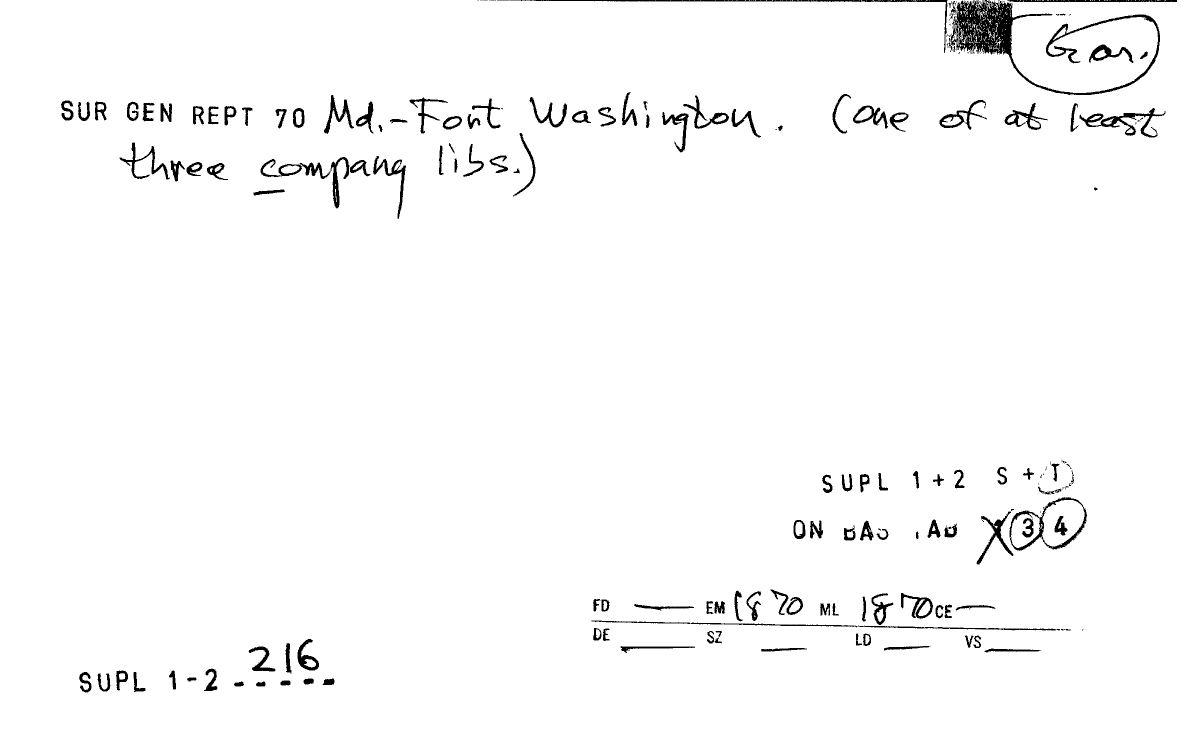 Gar.
SUR GEN REPT 70 Md.-Fort Washington. (one of at least
three company libs.)
SUPL 1+2 S + T
ON 3 4
FD — EM 1870 ML 1870 CE —
DE SZ LD VS
SUPL 1-2 216